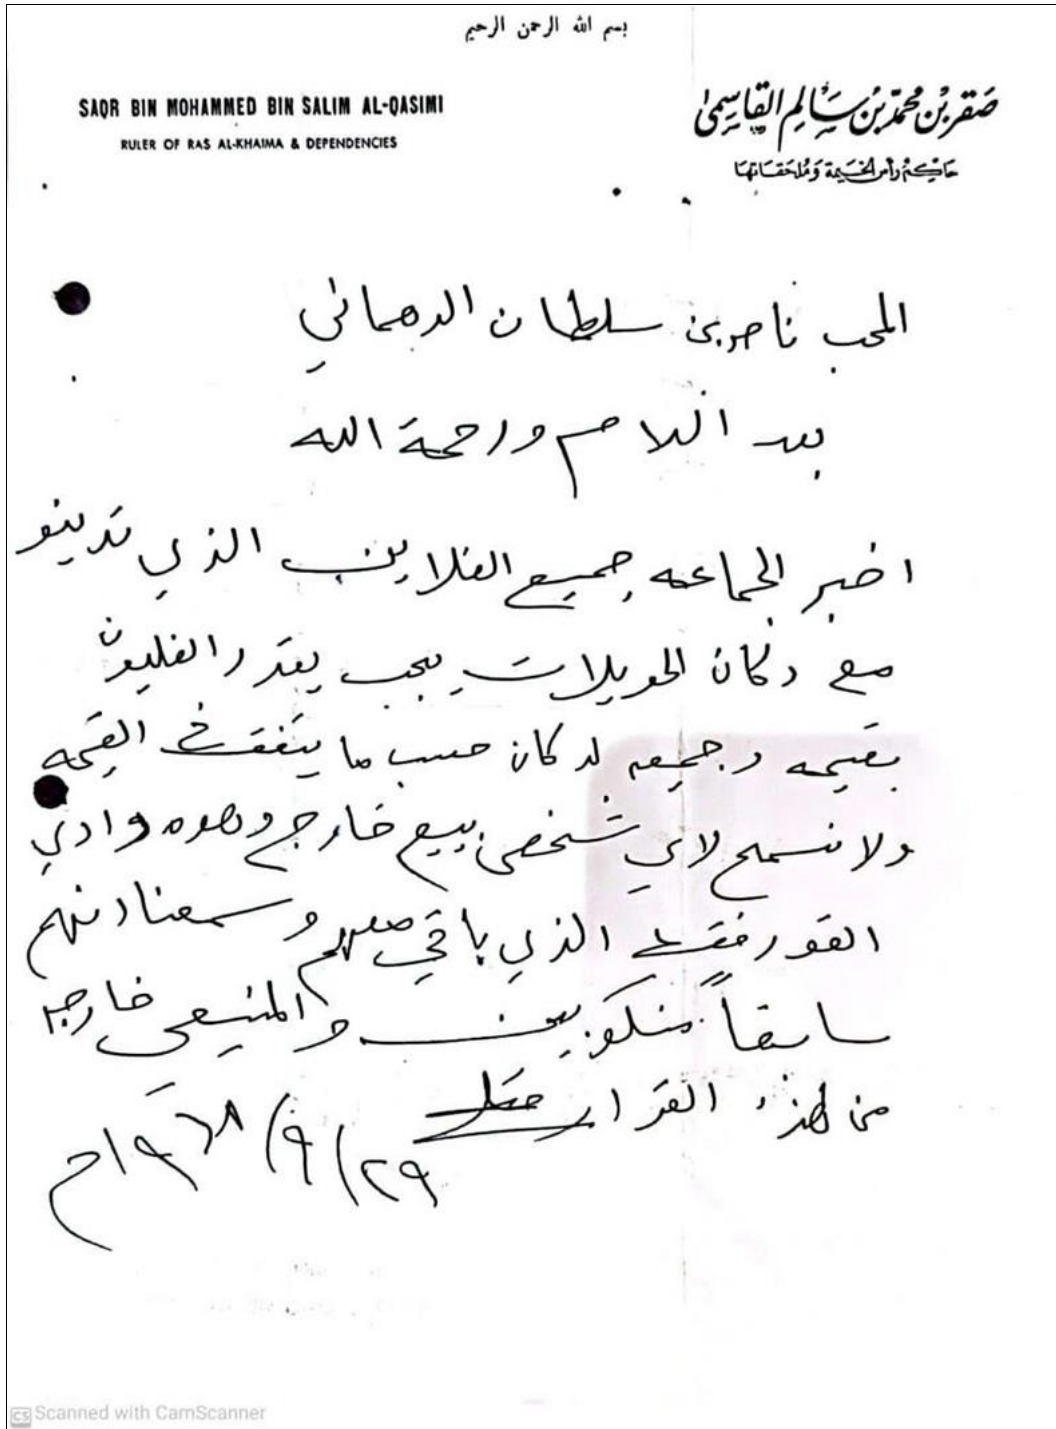 بسم الله الرحمن الرحيم
SAQR BIN MOHAMMED BIN SALIM AL-QASIMI
RULER OF RAS AL-KHAIMA & DEPENDENCIES
صقر بن محمد بن سالم القاسمي
حاكم رأس الخيمة وملحقاتها
المحب ناصر بن سلطان الدهماني
بعد السلام ورحمة الله
اخبر الجماعه جميع الغلايين الذي تدينو
مع دكان الحويلات يجب يقدر الغليون
بقيمه وجميعه لدكان حسب ما يتفق القيمه
ولا نسمح لاي شخص يبيع خارج وادي
القور فقط الذي باقي معهم وسمعنا انهم
سابقاً والمنيعي خارج
من هذه القرار صقر
٢٩/٩/١٩٦٨م
CS Scanned with CamScanner